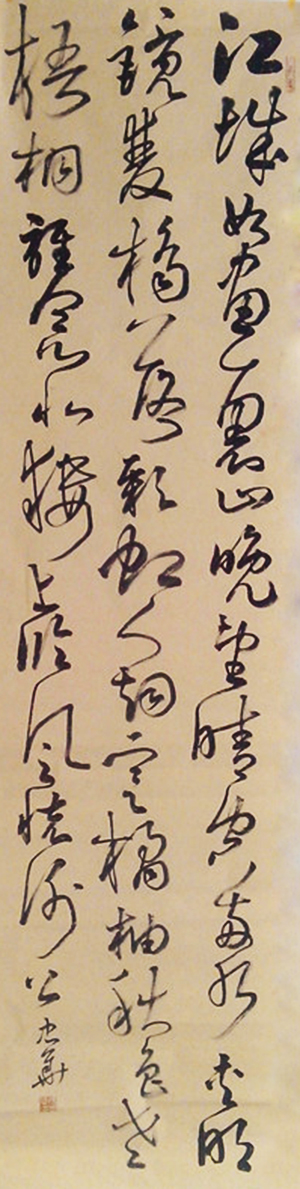 江城如画里山晚望晴空两水夹明
镜双桥落彩虹人烟寒橘柚秋色老
梧桐谁念北楼上临风怀谢公